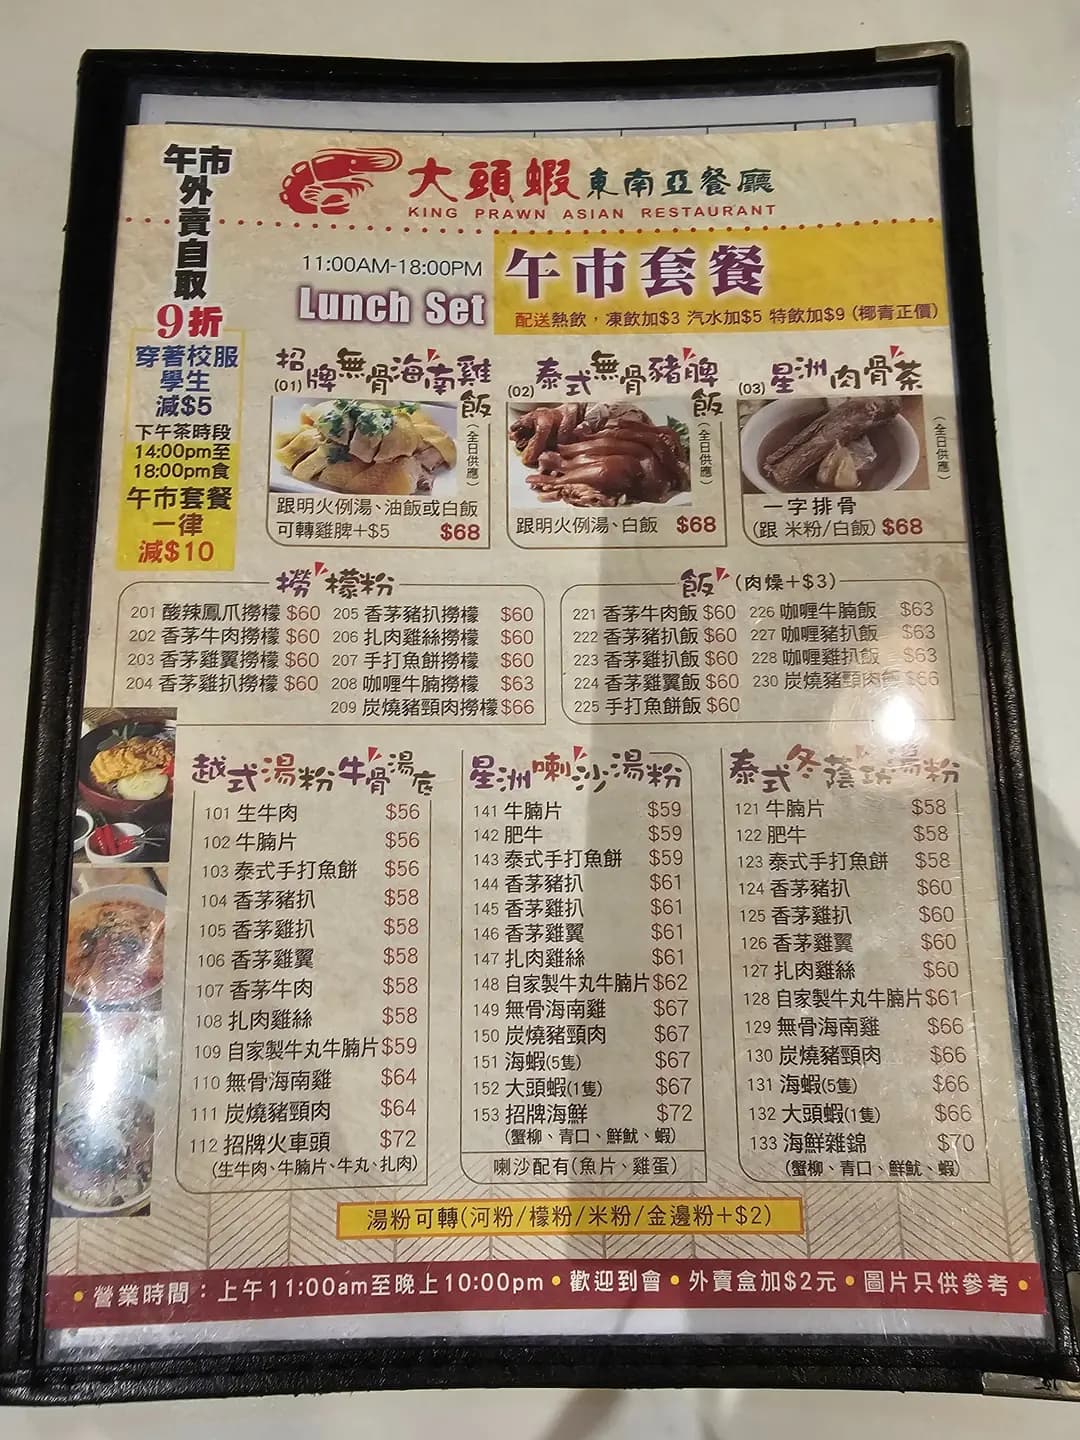 午市外賣自取
9折
穿著校服
學生
減$5
下午茶時段
14:00pm至
18:00pm食
午市套餐
一律
減$10
大頭蝦東南亞餐廳
KING PRAWN ASIAN RESTAURANT
11:00AM-18:00PM
Lunch Set
午市套餐
配送熱飲，凍飲加$3 汽水加$5 特飲加$9 (椰青正價)
(01) 招牌無骨海南雞飯
(全日供應)
跟明火例湯、油飯或白飯
可轉雞脾+$5 $68
(02) 泰式無骨豬脾飯
(全日供應)
跟明火例湯、白飯 $68
(03) 星洲肉骨茶
(全日供應)
一字排骨
(跟 米粉/白飯) $68
撈檬粉
201 酸辣鳳爪撈檬 $60
202 香茅牛肉撈檬 $60
203 香茅雞翼撈檬 $60
204 香茅雞扒撈檬 $60
205 香茅豬扒撈檬 $60
206 扎肉雞絲撈檬 $60
207 手打魚餅撈檬 $60
208 咖喱牛腩撈檬 $63
209 炭燒豬頸肉撈檬 $66
飯 (肉燥+$3)
221 香茅牛肉飯 $60
222 香茅豬扒飯 $60
223 香茅雞扒飯 $60
224 香茅雞翼飯 $60
225 手打魚餅飯 $60
226 咖喱牛腩飯 $63
227 咖喱豬扒飯 $63
228 咖喱雞扒飯 $63
230 炭燒豬頸肉飯 $66
越式湯粉牛骨湯底
101 生牛肉 $56
102 牛腩片 $56
103 泰式手打魚餅 $56
104 香茅豬扒 $58
105 香茅雞扒 $58
106 香茅雞翼 $58
107 香茅牛肉 $58
108 扎肉雞絲 $58
109 自家製牛丸牛腩片 $59
110 無骨海南雞 $64
111 炭燒豬頸肉 $64
112 招牌火車頭 $72
(生牛肉、牛腩片、牛丸、扎肉)
星洲喇沙湯粉
141 牛腩片 $59
142 肥牛 $59
143 泰式手打魚餅 $59
144 香茅豬扒 $61
145 香茅雞扒 $61
146 香茅雞翼 $61
147 扎肉雞絲 $61
148 自家製牛丸牛腩片 $62
149 無骨海南雞 $67
150 炭燒豬頸肉 $67
151 海蝦(5隻) $67
152 大頭蝦(1隻) $67
153 招牌海鮮 $72
(蟹柳、青口、鮮魷、蝦)
喇沙配有(魚片、雞蛋)
泰式冬蔭功湯粉
121 牛腩片 $58
122 肥牛 $58
123 泰式手打魚餅 $58
124 香茅豬扒 $60
125 香茅雞扒 $60
126 香茅雞翼 $60
127 扎肉雞絲 $60
128 自家製牛丸牛腩片 $61
129 無骨海南雞 $66
130 炭燒豬頸肉 $66
131 海蝦(5隻) $66
132 大頭蝦(1隻) $66
133 海鮮雜錦 $70
(蟹柳、青口、鮮魷、蝦)
湯粉可轉(河粉/檬粉/米粉/金邊粉+$2)
•營業時間：上午11:00am至晚上10:00pm•歡迎到會•外賣盒加$2元•圖片只供參考•